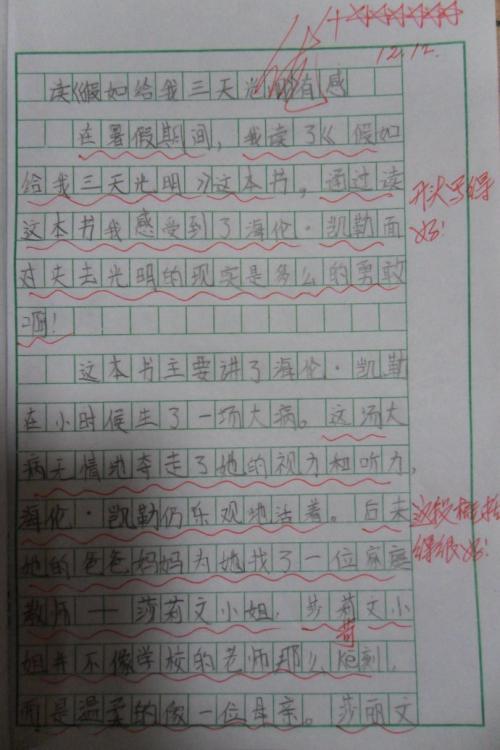 12.12.
读《假如给我三天光明》有感
在暑假期间，我读了《假如
给我三天光明》这本书，通过读
这本书我感受到了海伦·凯勒面
对失去光明的现实是多么的勇敢
啊！
开头写得
好！
这本书主要讲了海伦·凯斯
在小时候生了一场大病。这场大
病无情地夺走了她的视力和听力，
海伦·凯勒仍乐观地活着。后来
她的爸爸妈妈为她找了一位家庭
教师——莎莉文小姐，莎莉文小
这段概括
得很好！
姐并不像学校的老师那么刻，
苛
而是温柔的像一位母亲。莎丽文